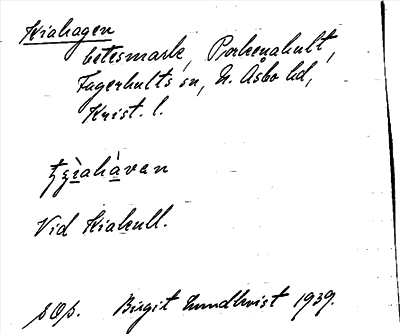 Kiahagen
betesmark, Porkenahult,
Fagerhults sn, N. Åsbo hd,
Krist. l.
tʒìahàvan
Vid Kiakull.
sOp. Birgit Lundkvist 1939.